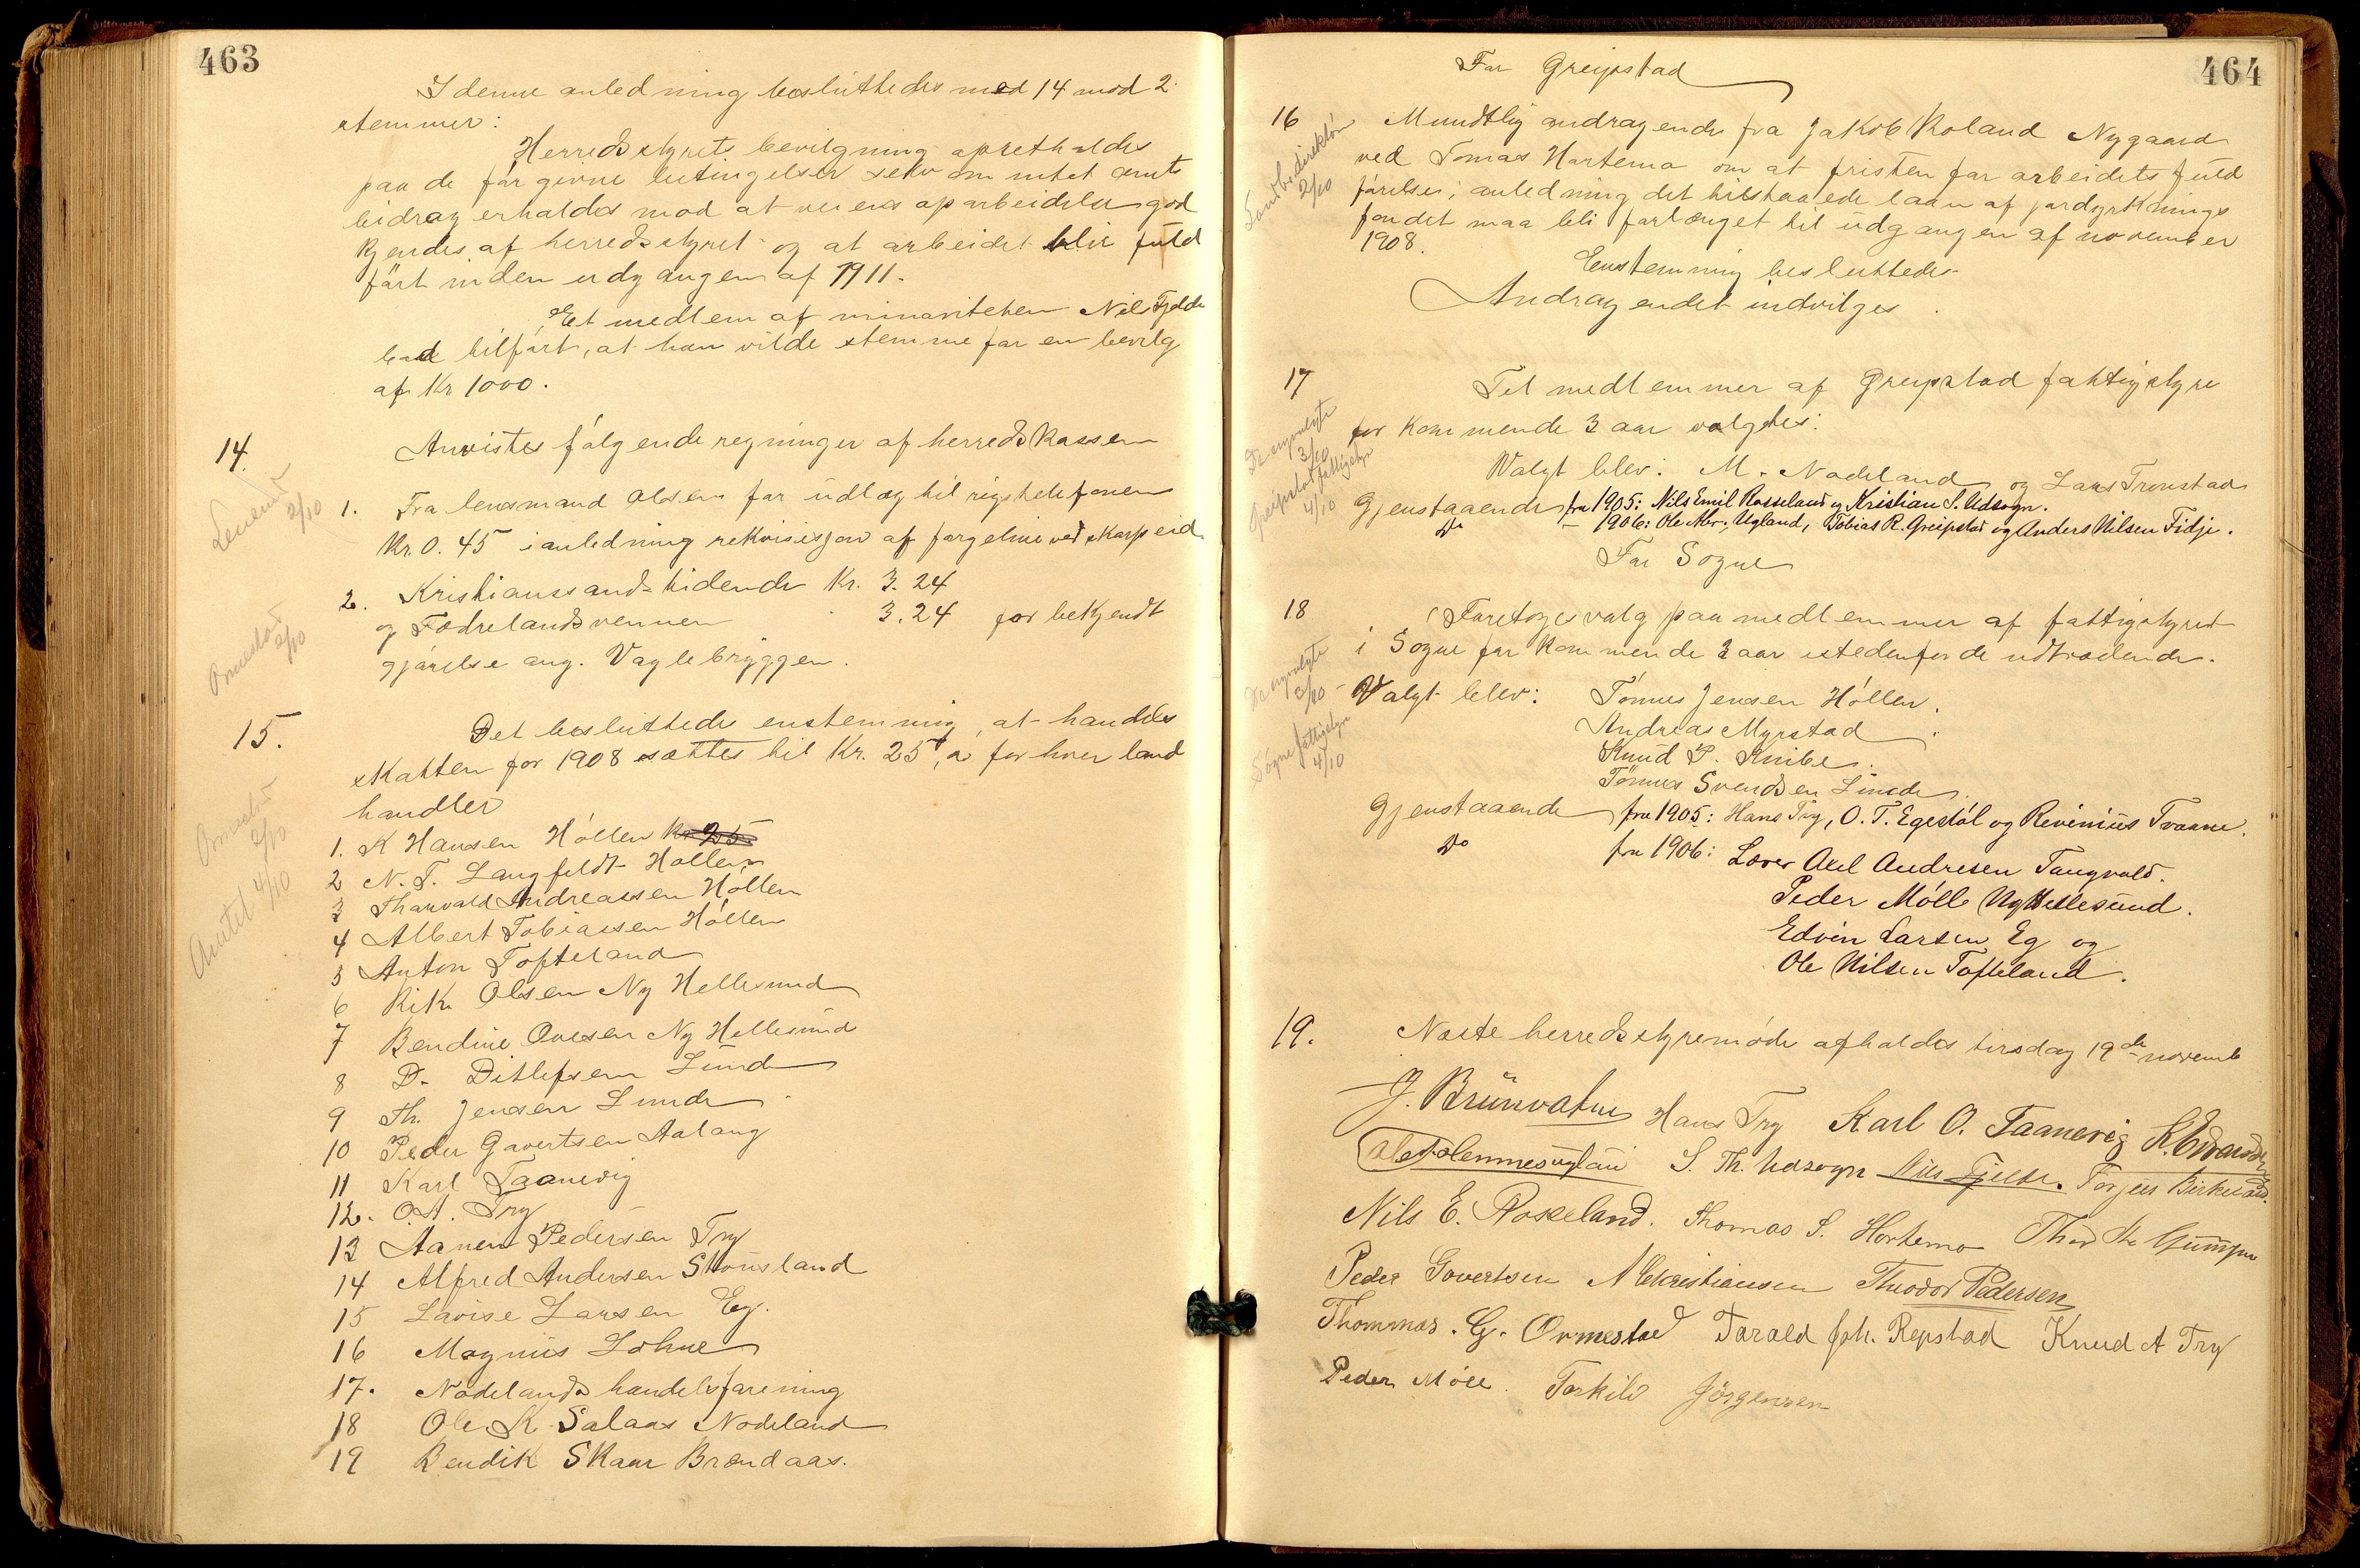 463
I denne anledning besluttedes med 14 mod 2
stemmer:
Herredsstyrets bevilgning opretholdes
paa de før givne betingelser selv om intet amts
bidrag erholdes mod at veiens oparbeidelse god
kjendes af herredsstyret og at arbeidet blir fuld
ført inden udgangen af 1911.
Et medlem af minoriteten Nils Fjelde
bad tilført, at han vilde stemme for en bevilg
af Kr 1000.
14.
Anvistes følgende regninger af herredskassen
Lensmd
2/10
1. Fra lensmand Olsen for udlæg til rigstelefonen
Kr. 0.45 i anledning rekvisisjon af færgeline ved Skarpeid
2. Kristianssands tidende Kr. 3.24
og Fædrelandsvennen 3.24 for bekjendt
gjørelse ang. Vaglebryggen.
Ormestad
2/10
15.
Det besluttedes enstemmig, at handels
skatten for 1908 sættes til Kr. 25, a for hver land
handler
Ormestad
2/10
Amtet 4/10
1. K Hansen Høllen Kr 25
2 N. T. Langfeldt Høllen
3 Thorvald Andreassen Høllen
4 Albert Tobiassen Høllen
5 Anton Tofteland
6 Rik. Olsen Ny Hellesund
7 Bendine Ovesen Ny Hellesund
8 D. Ditlefsen Lunde
9 Th. Jensen Lunde
10 Peder Govertsen Aalang
11 Karl Taanevig
12. O. A. Try
13 Aanen Pedersen Try
14 Alfred Andersen Stousland
15 Lovise Larsen Eg.
16 Magnus Lohne
17. Nodelands handelsforening
18 Ole K. Salaas Nodeland
19 Bendik Skaar Brandaas.
464
For Greipstad
16 Mundtlig andragende fra Jakob Roland Nygaard
ved Tomas Hortemo om at fristen for arbeidets fuld
førelse i anledning det tilstaaede laan af jordyrknings
fondet maa bli forlænget til udgangen af november
1908.
Landbr.direktør
2/10
Enstemmig besluttedes
Andragendet indvilges.
17
Til medlemmer af Greipstad fattigstyre
for kommende 3 aar valgtes:
De nyvalgte
3/10
Greipstad fattigstyre
4/10
Valgt blev: M. Nodeland og Lars Tronstad
Gjenstaaende fra 1905: Nils Emil Rosseland og Kristian S. Udsogn.
Do — 1906: Ole Mir. Ugland, Tobias R. Greipstad og Anders Nilsen Fidje.
For Sogne
18
Foretoges valg paa medlemmer af fattigstyret
i Sogne for kommende 3 aar istedenfor de udtrædende.
De nyvalgte
3/10
Søgne fattigstyre
4/10
Valgt blev: Tønnes Jensen Høllen.
Andreas Myrstad.
Knud P. Knibe.
Tønnes Svendsen Lunde.
Gjenstaaende fra 1905: Hans Try, O. T. Egestøl og Revinius Tvaane.
Do fra 1906: Lærer Axel Andresen Tangvald.
Peder Mølle Ny Hellesund.
Edvin Larsen Eg og
Ole Nilsen Tofteland.
19. Næste herredsstyremøde afholdes tirsdag 19de novemb
J. Brunvatne Hans Try Karl O. Taanevig
S. Th. Udsogn Nils Fjelde. Torjus Birkeland.
Nils E. Roseland. Thomas S. Hortemo
Peder Govertsen N Christiansen Theodor Pedersen
Thommas. G. Ormestad Tarald Joh. Repstad Knud A Try
Peder Möll. Torkild Jörgensen